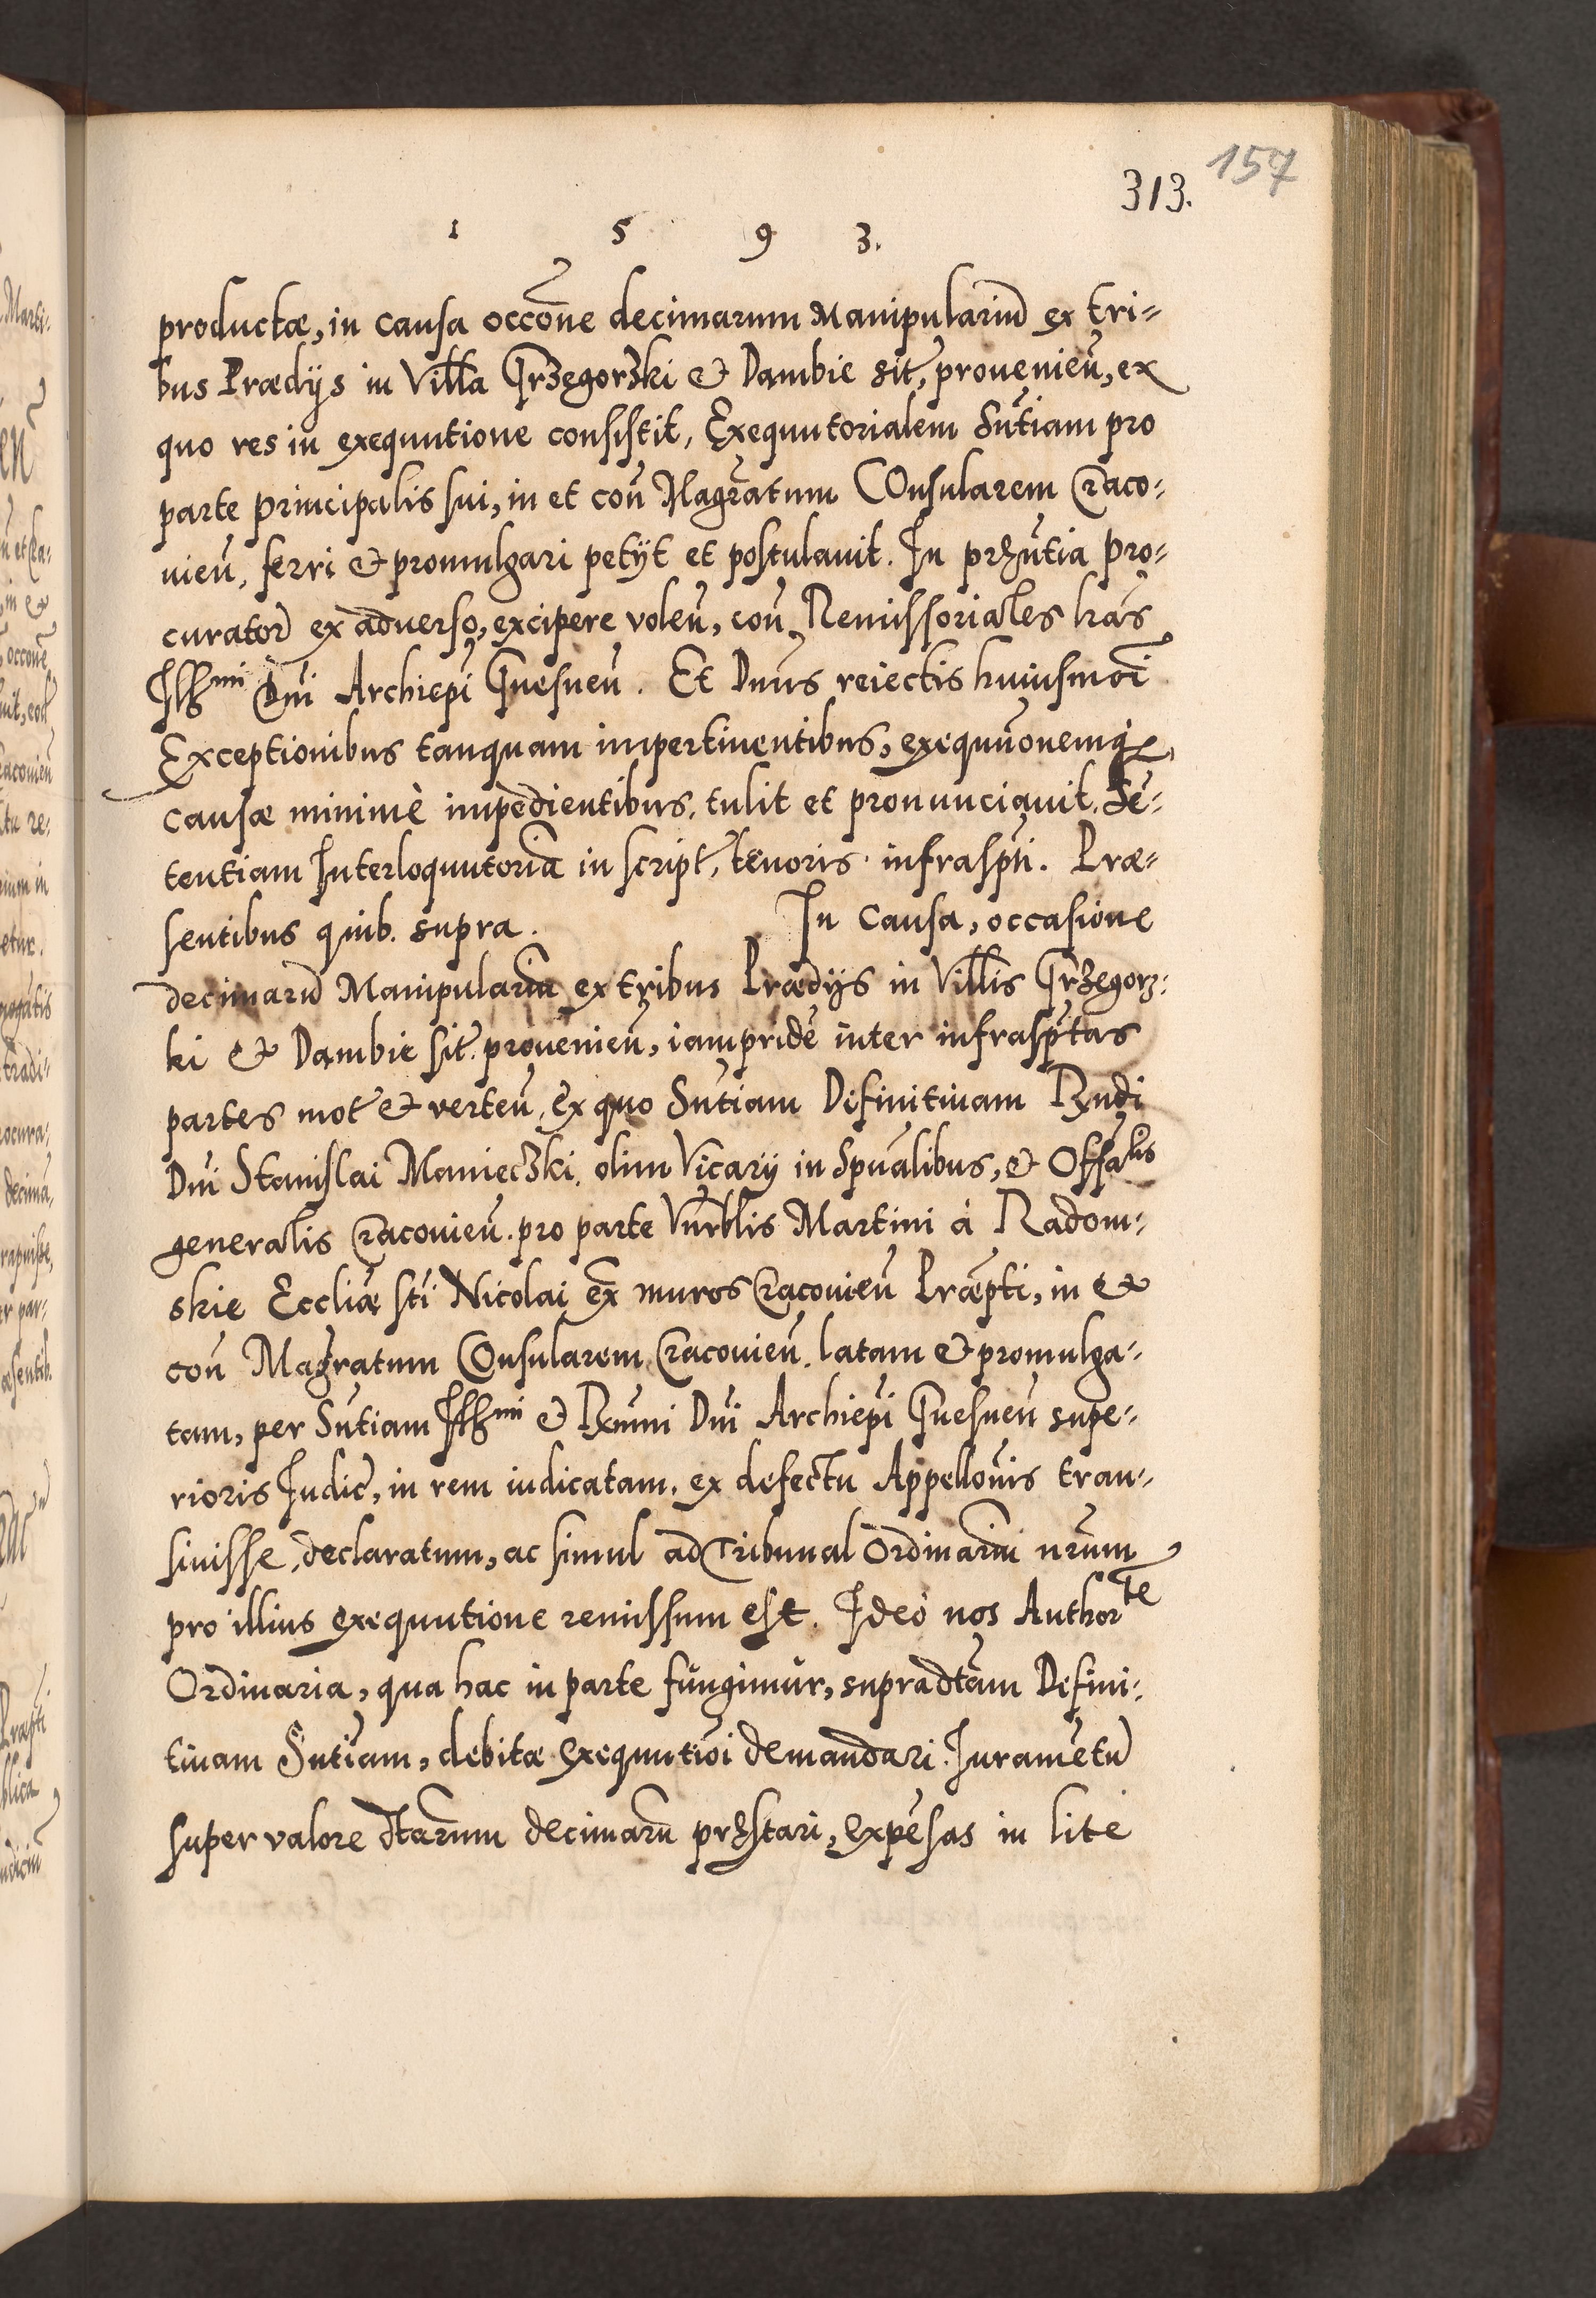 157
313.
1 5 9 3.
productæ, in causa occõne decimarum Manipulariũ ex tri=
bus Prædijs in Villa Grzegorzki & Dambie sit, prouenieñ, ex
quo res in exequutione consistit, Exequutorialem Sñtiam pro
parte principalis sui, in et coñ Magr̃atum COnsularem Craco=
uieñ, ferri & promulgari petÿt et postulauit. In prȝñtia pro=
curator̃ ex aduerso, excipere voleñ, coñ Remissoriales lr̃as
Illȝmi Dñi Archiep̃i Gnesneñ. Et Dñus reiectis huiusmõi
Exceptionibus tanquam impertinentibus, exequuõnemq̃
causæ minimè impedientibus, tulit et pronunciauit. Sẽ=
tentiam Interloquutoriã in script, tenoris infrasp̃ti. Præ=
sentibus quib. supra. In causa, occasione
decimarũ Manipulariũ ex tribus Prædijs in Villis Grzegorz=
ki & Dambie sit. prouenieñ, iampridẽ inter infrasp̃tas
partes mot & verteñ, ex quo Sñtiam Definitiuam Rñdi
Dñi Stanislai Manieczki, olim Vicarij in Spũalibus, & Offa̅lis
generalis Cracouieñ. pro parte Vnr̃blis Martini à Radom=
skie Eccliæ sti Nicolai ex̃ muros Cracouieñ Præp̃ti, in &
coñ Magr̃atum COnsularem Cracouieñ. latam & promulga=
tam, per Sñtiam Illȝmi & Rxmi Dñi Archiep̃i Gnesneñ supe=
rioris Iudic̃, in rem iudicatam. ex defectu Appellõnis tran=
siuisse, declaratum, ac simul ad Tribunal Ordinariũ nr̃um
pro illius exequutione remissum est. Ideò nos Authorte
Ordinaria, qua hac in parte fungimur, supradtãm Defini=
tiuam Sñtiam, debitæ exequutiõi demandari. Iuramẽtũ
super valore dtar̃um decimarũ prȝstari, expẽsas in lite